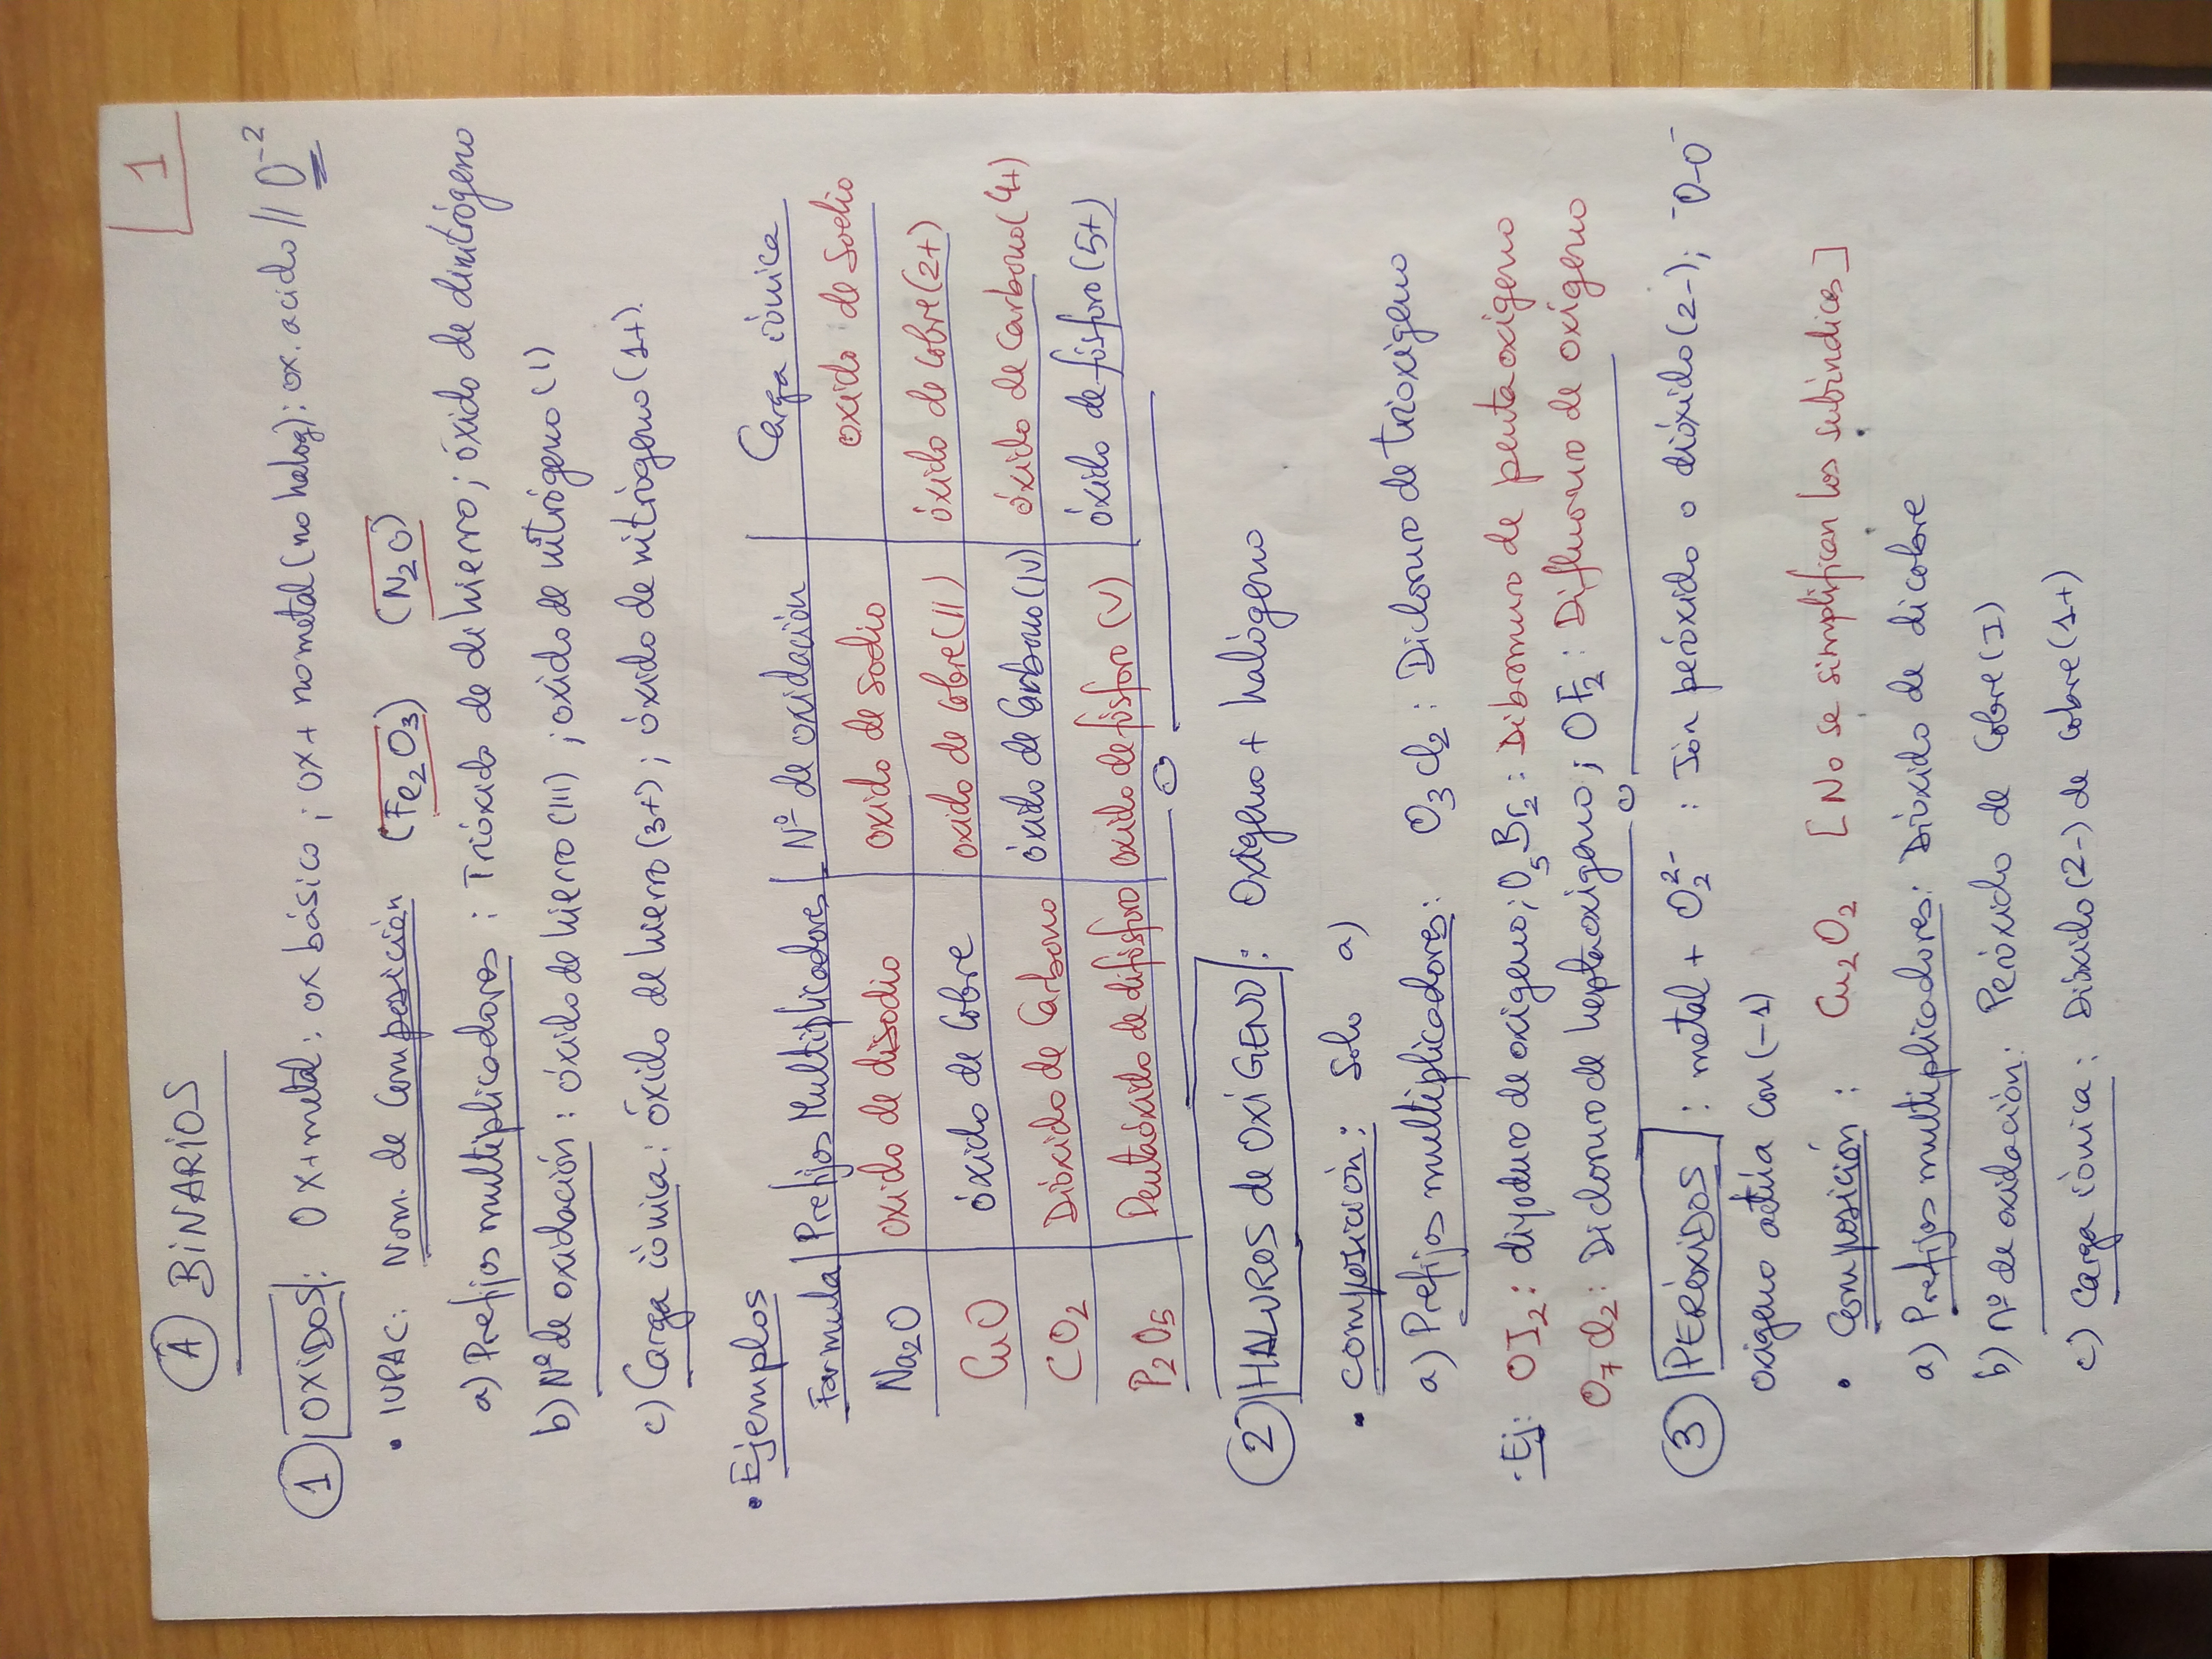 1
A BINARIOS
1 OXIDOS: OX+metal: ox básico ; ox + no metal (no halog): ox. acido // O⁻²
• IUPAC: Nom. de Composición (Fe₂O₃) (N₂O)
a) Prefijos multiplicadores : Trióxido de di hierro ; óxido de dinitrógeno
b) Nº de oxidación : óxido de hierro (III) ; oxido de nitrógeno (I)
c) Carga iónica : óxido de hierro (3+) ; óxido de nitrógeno (1+).
• Ejemplos
Formula | Prefijos Multiplicadores | Nº de oxidación | Carga iónica
Na₂O | oxido de disodio | oxido de sodio | oxido de sodio
CuO | óxido de Cobre | oxido de Cobre (II) | óxido de Cobre (2+)
CO₂ | Dióxido de Carbono | óxido de Carbono (IV) | óxido de Carbono (4+)
P₂O₅ | Pentaóxido de difósforo | oxido de fósforo (V) | óxido de fósforo (5+)
2 HALUROS de OXIGENO : Oxigeno + halógeno
• Composición : Solo a)
a) Prefijos multiplicadores : O₃Cl₂ : Dicloruro de trioxigeno
· Ej: OI₂ : diyoduro de oxigeno ; O₅Br₂ : Dibromuro de pentaoxigeno
O₇Cl₂ : Dicloruro de heptaoxigeno ; OF₂ : Difluoruro de oxigeno
3 PERÓXIDOS : metal + O₂²⁻ : Ión peróxido o dióxido (2-) ; ⁻O-O⁻
oxigeno actúa con (-1)
• Composición : Cu₂O₂ [No se simplifican los subindices]
a) Prefijos multiplicadores : Dióxido de dicobre
b) nº de oxidación : Peróxido de Cobre (I)
c) Carga iónica : Dióxido (2-) de cobre (1+)